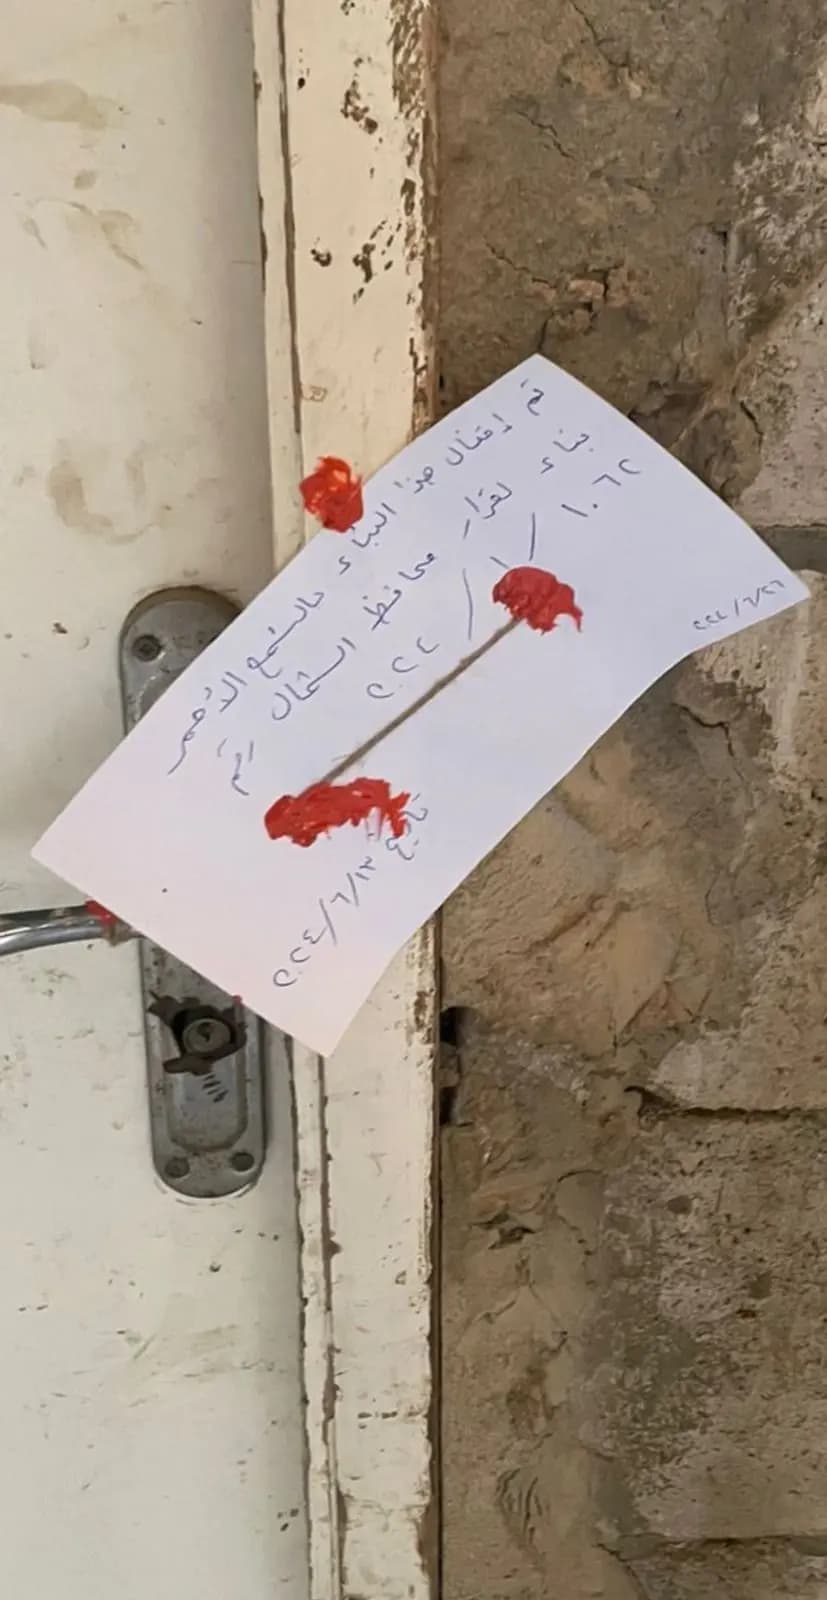 تم إقفال هذا البناء بالشمع الأحمر
بناء لقرار محافظ الشمال رقم
١٠٦٢ / ١ / ٢٠٢٢
تاريخ ٢٠٢٤/٦/١٣